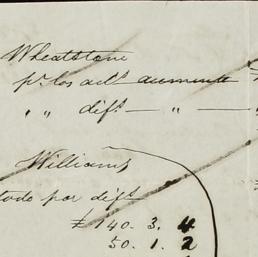 Wheatstone
pr los adls aumento
" " difs — " —
Williams
todo por difs
£ 140. 3. 4
50. 1. 2